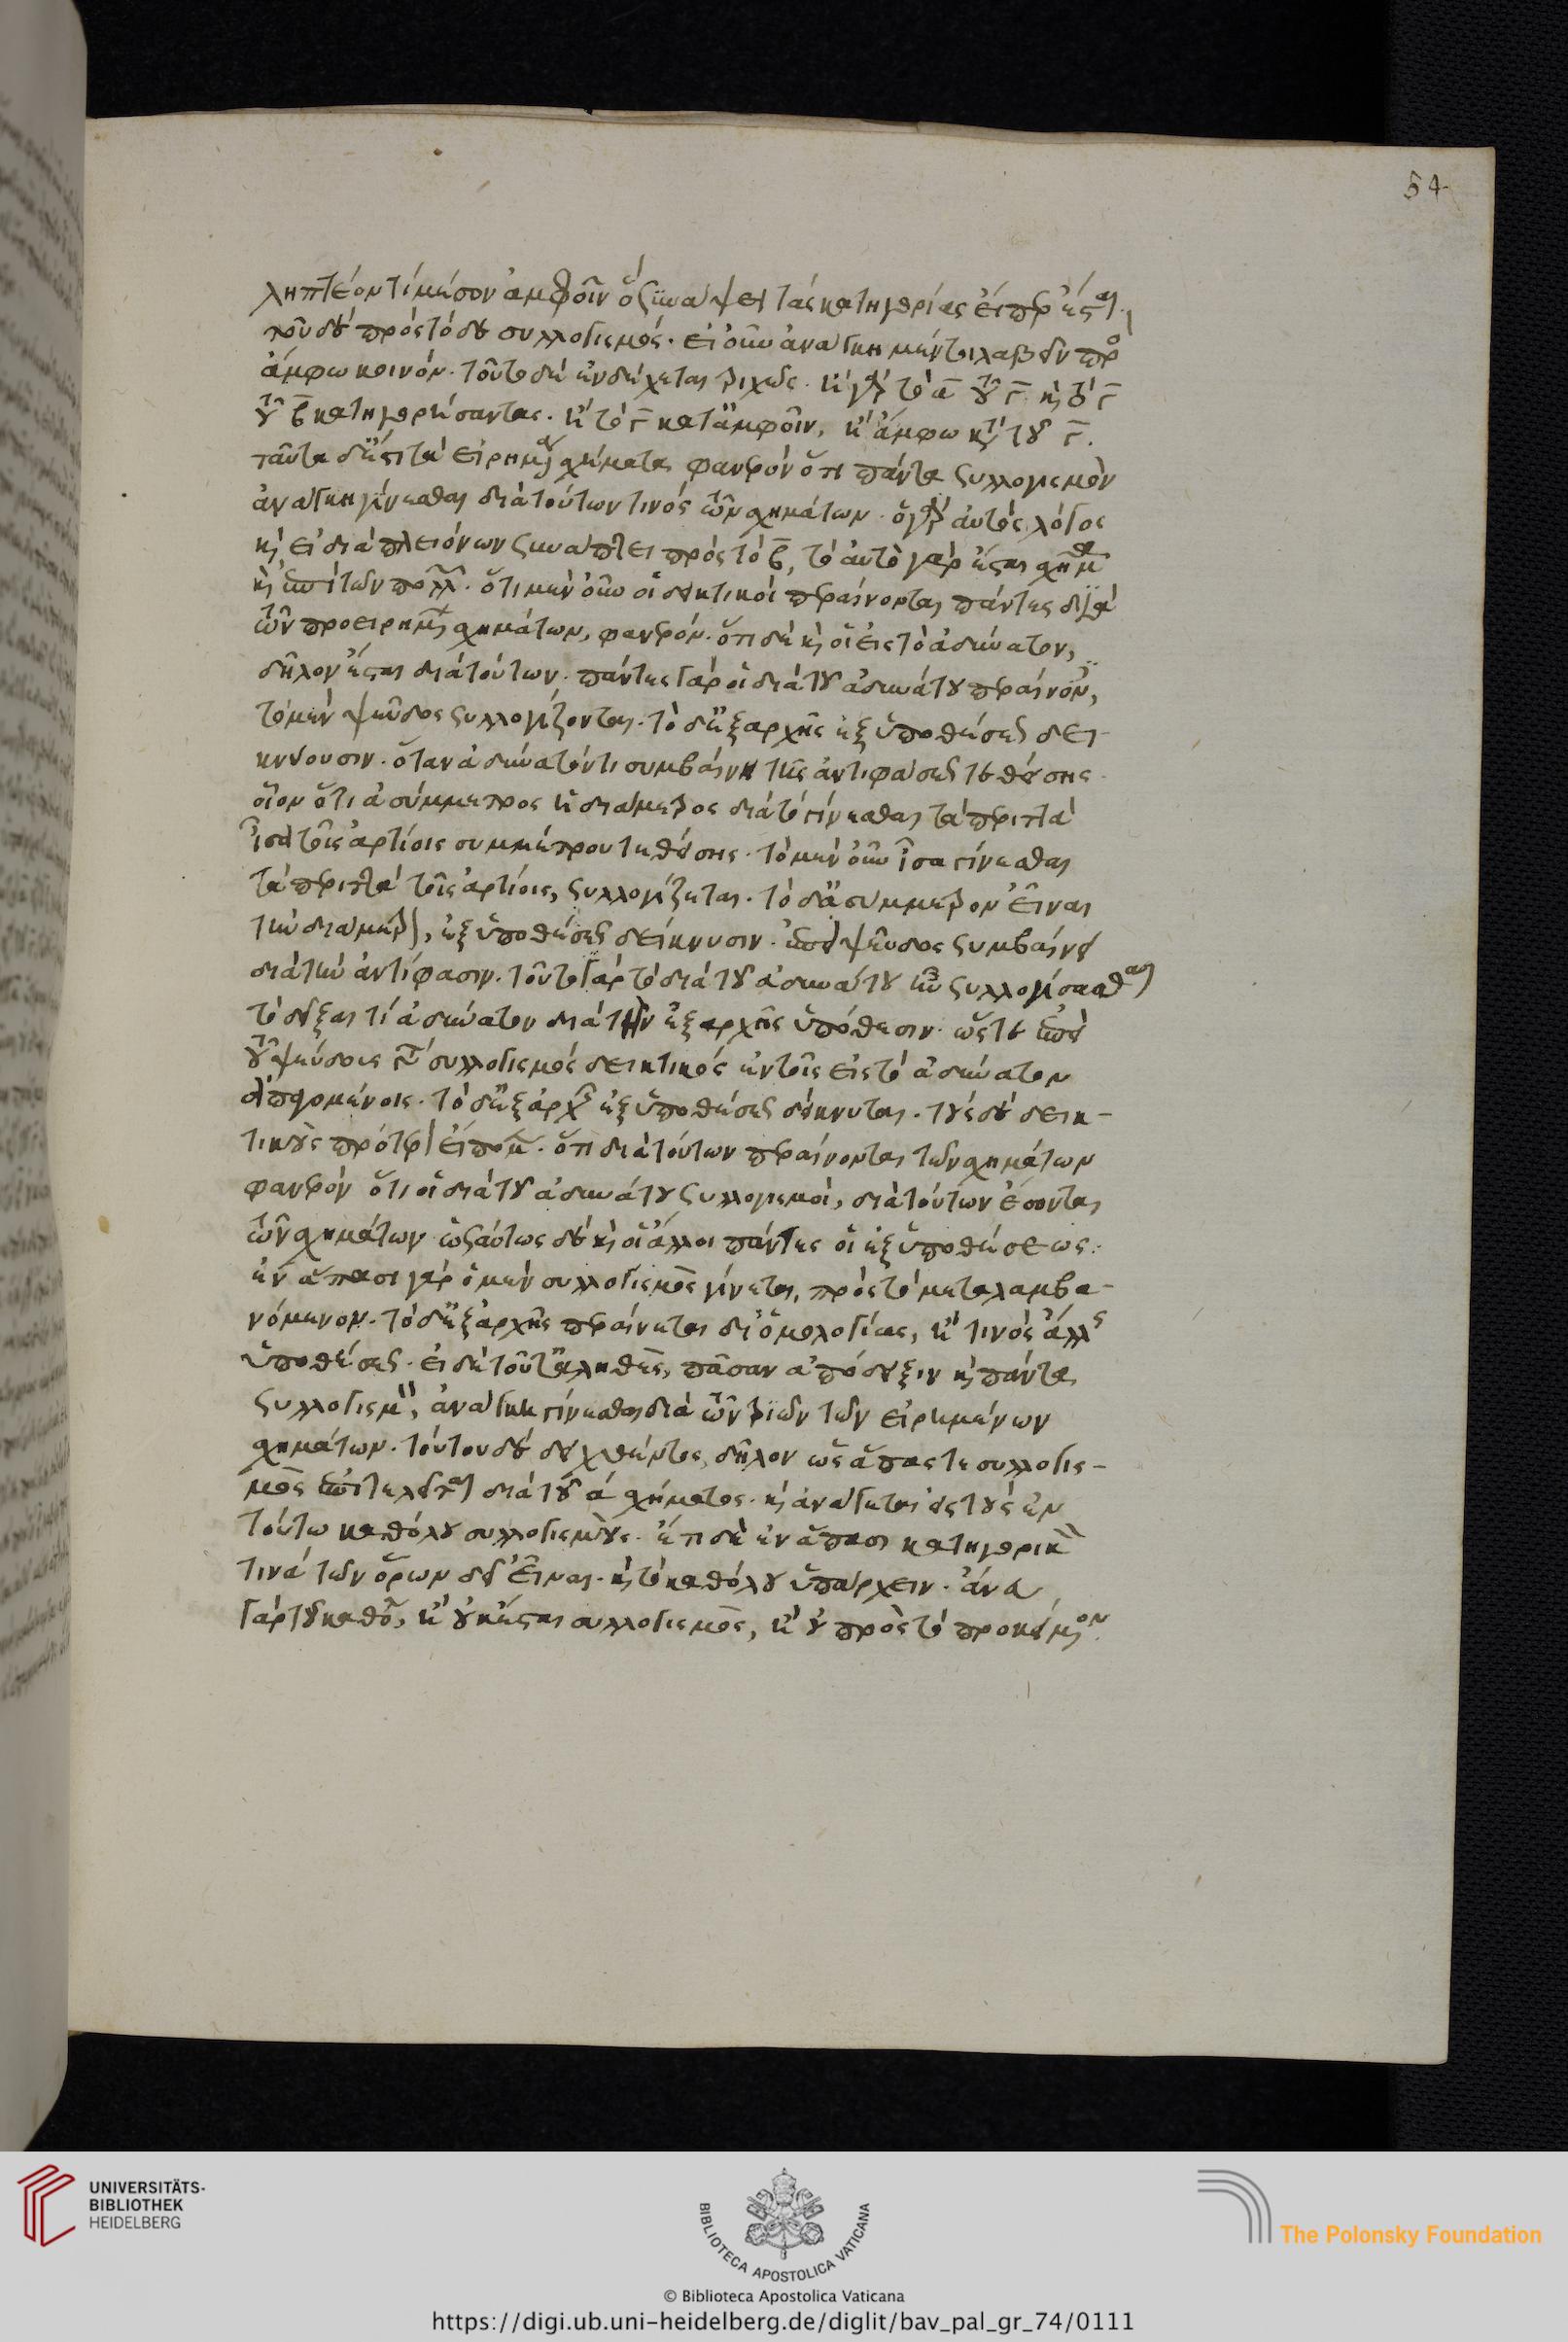 54
ληπτέον τι μέσον ἀμφοῖν ὃ συνάψει τὰς κατηγορίας εἴπερ ἔσται
τοῦδε πρὸς τόδε συλλογισμός. εἰ οὖν ἀνάγκη μέν τι λαβεῖν πρὸς
ἄμφω κοινόν. τοῦτο δὲ ἐνδέχεται τριχῶς. ἢ γὰρ τὸ α τοῦ γ καὶ τὸ γ
τοῦ β κατηγορήσαντας. ἢ τὸ γ κατ' ἀμφοῖν, ἢ ἄμφω κατὰ τοῦ γ.
ταῦτα δ' ἐστὶ τὰ εἰρημένα σχήματα φανερὸν ὅτι πάντα συλλογισμὸν
ἀνάγκη γίνεσθαι διὰ τούτων τινὸς τῶν σχημάτων. ὁ γὰρ αὐτὸς λόγος
καὶ εἰ διὰ πλειόνων συνάπτει πρὸς τὸ β, τὸ αὐτὸ γὰρ ἔσται σχῆμα
καὶ ἐπὶ τῶν πολλῶν. ὅτι μὲν οὖν οἱ δεικτικοὶ περαίνονται πάντες διὰ
τῶν προειρημένων σχημάτων, φανερόν. ὅτι δὲ καὶ οἱ εἰς τὸ ἀδύνατον,
δῆλον ἔσται διὰ τούτων. πάντες γὰρ οἱ διὰ τοῦ ἀδυνάτου περαίνοντες,
τὸ μὲν ψεῦδος συλλογίζονται. τὸ δ' ἐξ αρχῆς ἐξ ὑποθέσεως δει-
κνύουσιν. ὅταν ἀδύνατόν τι συμβαίνη τῆς ἀντιφάσεως τεθείσης.
οἷον ὅτι ἀσύμμετρος ἡ διάμετρος διὰ τὸ γίνεσθαι τὰ περιττὰ
ἴσα τοῖς ἀρτίοις συμμέτρου τεθείσης. τὸ μὲν οὖν ἴσα γίνεσθαι
τὰ περιττὰ τοῖς ἀρτίοις, συλλογίζεται. τὸ δ' ἀσύμμετρον εἶναι
τὴν διάμετρον, ἐξ ὑποθέσεως δείκνυσιν. ἐπεὶ ψεῦδος συμβαίνει
διὰ τὴν ἀντίφασιν. τοῦτο γὰρ τὸ διὰ τοῦ ἀδυνάτου ἦν συλλογίσασθαι
τὸ δεῖξαι τί ἀδύνατον διὰ τὴν ἐξ αρχῆς ὑπόθεσιν. ὥστε ἐπεὶ
τοῦ ψεύδους γίνεται συλλογισμὸς δεικτικὸς ἐν τοῖς εἰς τὸ ἀδύνατον
ἀπαγομένοις. τὸ δ' ἐξ ἀρχῆς ἐξ ὑποθέσεως δείκνυται. τοὺς δὲ δεικ-
τικοὺς πρότερον εἴπομεν. ὅτι διὰ τούτων περαίνονται τῶν σχημάτων
φανερὸν ὅτι οἱ διὰ τοῦ ἀδυνάτου συλλογισμοί, διὰ τούτων ἔσονται
τῶν σχημάτων ὡσαύτως δὲ καὶ οἱ ἄλλοι πάντες οἱ ἐξ ὑποθέσεως.
ἐν ἅπασι γὰρ ὁ μὲν συλλογισμὸς γίνεται, πρὸς τὸ μεταλαμβα-
νόμενον. τὸ δ' ἐξ ἀρχῆς περαίνεται δι' ὁμολογίας, ἤ τινος ἄλλης
ὑποθέσεως. εἰ δὲ τοῦτ' ἀληθὲς, πᾶσαν ἀπόδειξιν καὶ πάντα
συλλογισμὸν, ἀνάγκη γίνεσθαι διὰ τῶν τριῶν τῶν εἰρημένων
σχημάτων. τούτου δὲ δειχθέντος, δῆλον ὡς ἅπας τε συλλογισ-
μὸς ἐπιτελεῖται διὰ τοῦ α σχήματος. καὶ ἀνάγεται εἰς τοὺς ἐν
τούτω καθόλου συλλογισμοὺς. ἔτι δὲ ἐν ἅπασι κατηγορικὸν
τινὰ τῶν ὅρων δεῖ εἶναι. καὶ τὸ καθόλου ὑπάρχειν. ἄνευ
γὰρ τοῦ καθόλου, ἢ οὐκ ἔσται συλλογισμὸς, ἢ οὐ πρὸς τὸ προκείμενον.
UNIVERSITÄTS-
BIBLIOTHEK
HEIDELBERG
BIBLIOTECA APOSTOLICA VATICANA
The Polonsky Foundation
© Biblioteca Apostolica Vaticana
https://digi.ub.uni-heidelberg.de/diglit/bav_pal_gr_74/0111